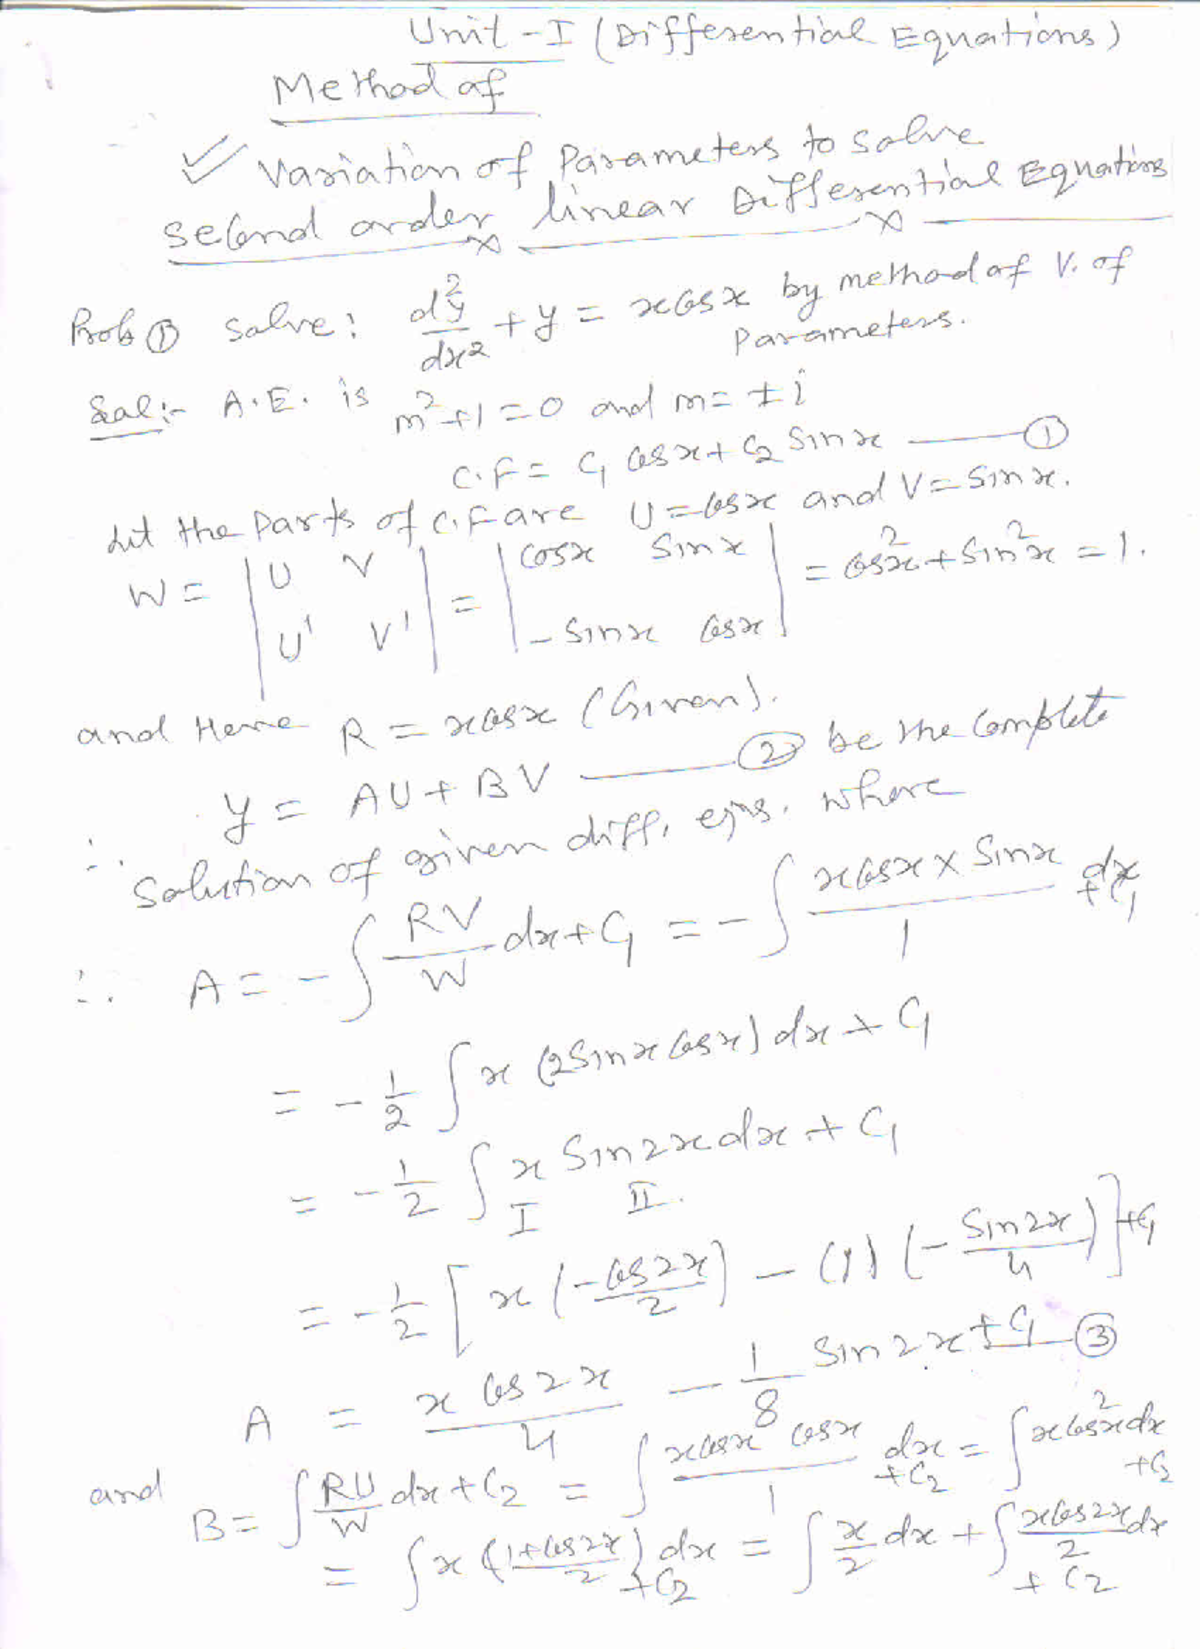 Unit - I (Differential Equations)
Method of
✓ Variation of Parameters to solve
second order linear Differential Equations
Prob ① Solve: d²y/dx² + y = x cos x by method of V. of
Parameters.
Sol:- A.E. is m² + 1 = 0 and m = ± i
C.F = C₁ cos x + C₂ sin x ——— ①
Let the Parts of C.F are U = cos x and V = sin x.
W = | U V ; U' V' | = | cos x sin x ; - sin x cos x | = cos² x + sin² x = 1.
and Here R = x cos x (Given).
∴ y = AU + BV ——— ② be the complete
solution of given diff. eqns. where
∴ A = - ∫ RV/W dx + C₁ = - ∫ (x cos x × sin x)/1 dx + C₁
= - 1/2 ∫ x (2 sin x cos x) dx + C₁
= - 1/2 ∫ x sin 2x dx + C₁
I II.
= - 1/2 [ x (- cos 2x/2) - (1) (- sin 2x/4) ] + C₁
A = x cos 2x/4 - 1/8 sin 2x + C₁ — ③
and B = ∫ RU/W dx + C₂ = ∫ (x cos x cos x)/1 dx + C₂ = ∫ x cos² x dx + C₂
= ∫ x ((1 + cos 2x)/2) dx + C₂ = ∫ x/2 dx + ∫ x cos 2x/2 dx + C₂